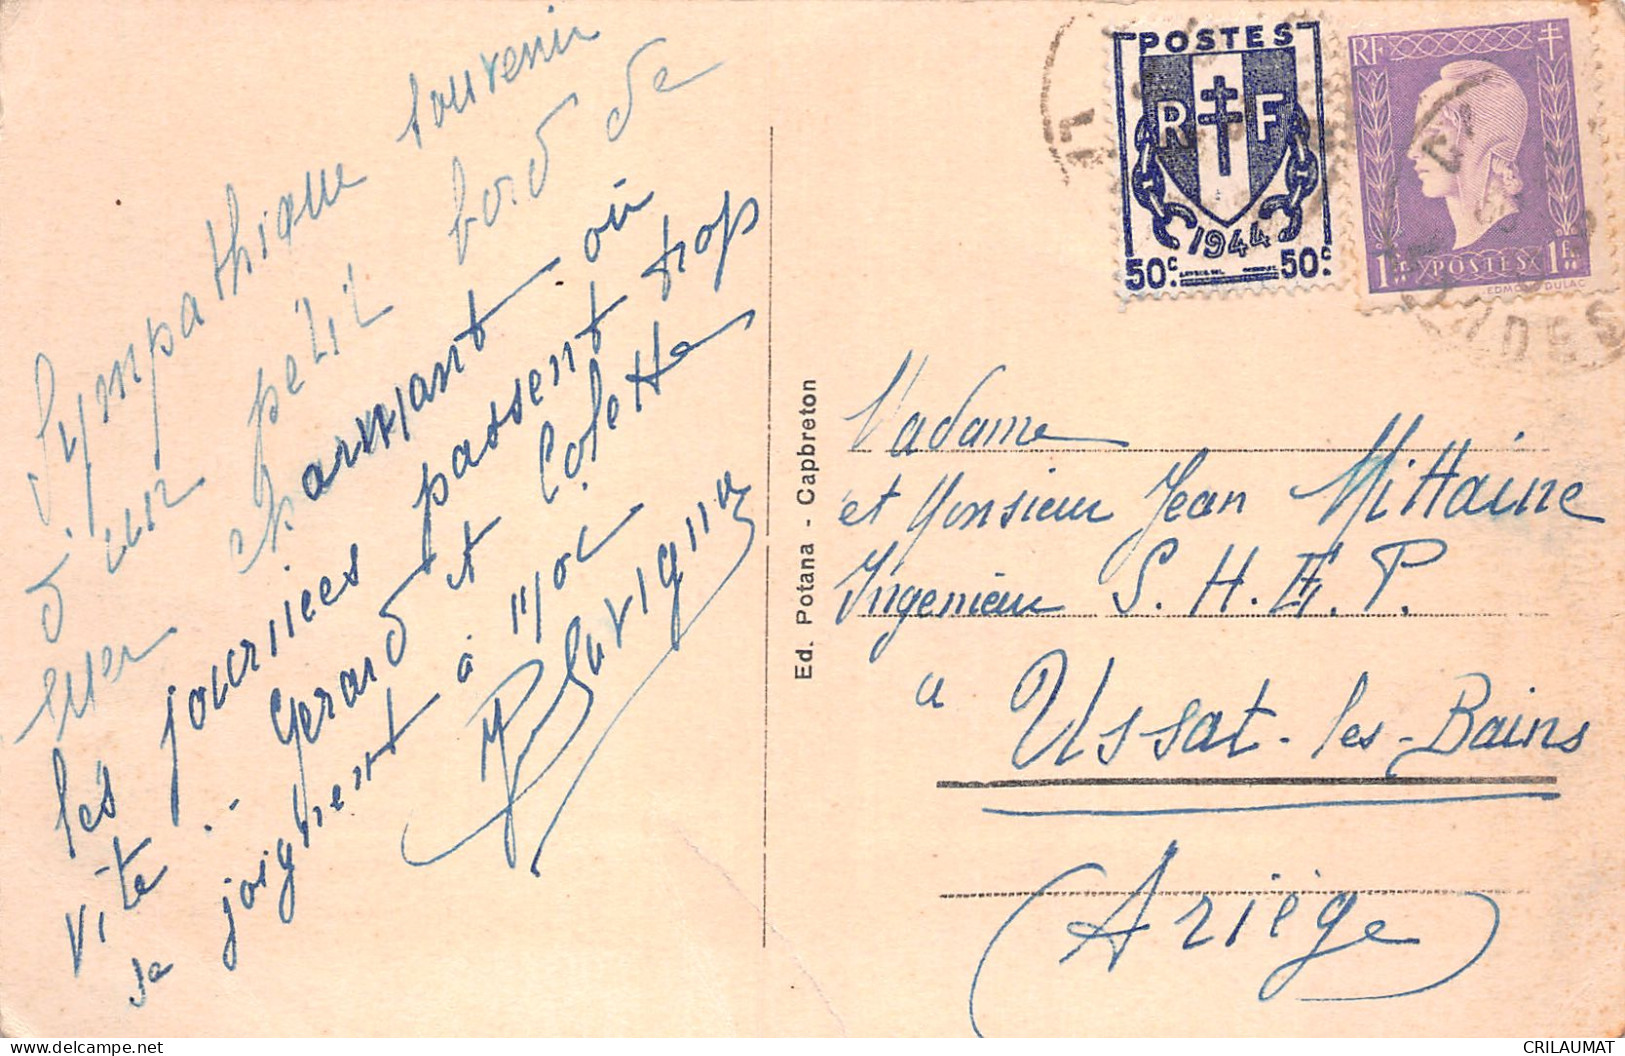 Sympathique souvenir
d'un petit bord de
mer charmant où
les journées passent trop
vite... Gérard et Colette
se joignent à moi
Ed. Potana - Capbreton
POSTES
R F
1944
50c 50c
RF
1F POSTES 1F
EDMOND DULAC
NDES
Madame
et Monsieur Jean Mittaine
Ingénieur S. H. E. P.
à Ussat-les-Bains
Ariège
CRILAUMAT